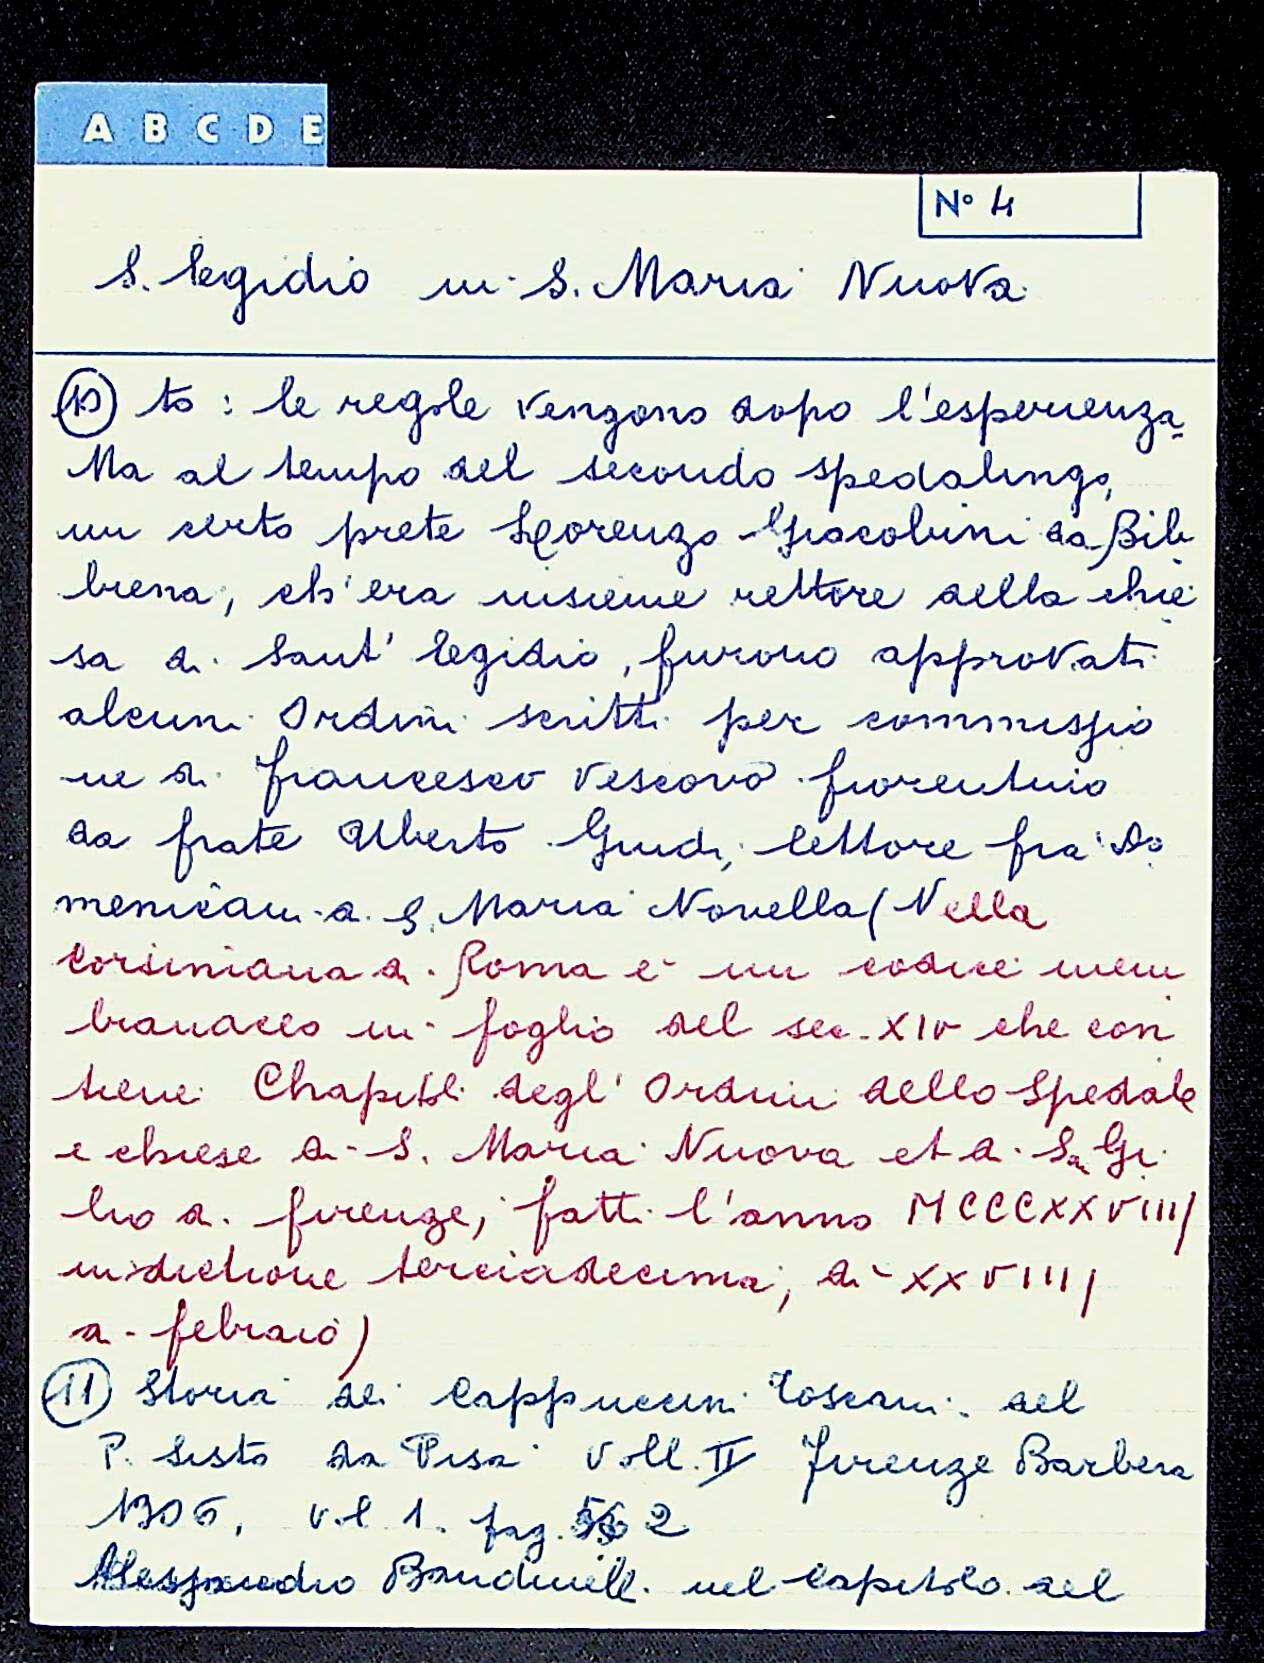 A B C D E
N° 4
S. Egidio in S. Maria Nuova
10 to: le regole vengono dopo l'esperienza.
Ma al tempo del secondo spedalingo,
un certo prete Lorenzo Giacobini da Bib
biena, ch'era insieme rettore della chie
sa di Sant' Egidio, furono approvati
alcuni Ordini scritti per commissio
ne di Francesco Vescovo fiorentino
da frate Uberto Guidi, lettore fra' Do
menicani a S. Maria Novella (Nella
Corsiniana di Roma è un codice mem
branaceo in foglio del sec. XIV che con
tiene Chapitoli degl' Ordini dello Spedale
e chiese di S. Maria Nuova et di San Gi
lio di Firenze, fatti l'anno MCCCXXVIIII
indictione terciadecima, di XXVIIII
di febraio)
11 Storia dei Cappuccini Toscani del
P. Sisto da Pisa Voll. II Firenze Barbera
1906, vol 1. pag. 2
Alessandro Bandinelli nel capitolo del